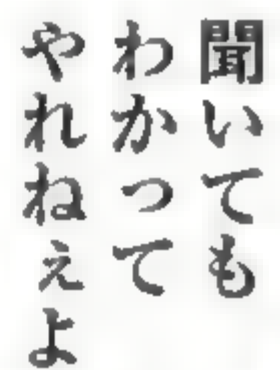 聞いても
わかって
やれねぇよ